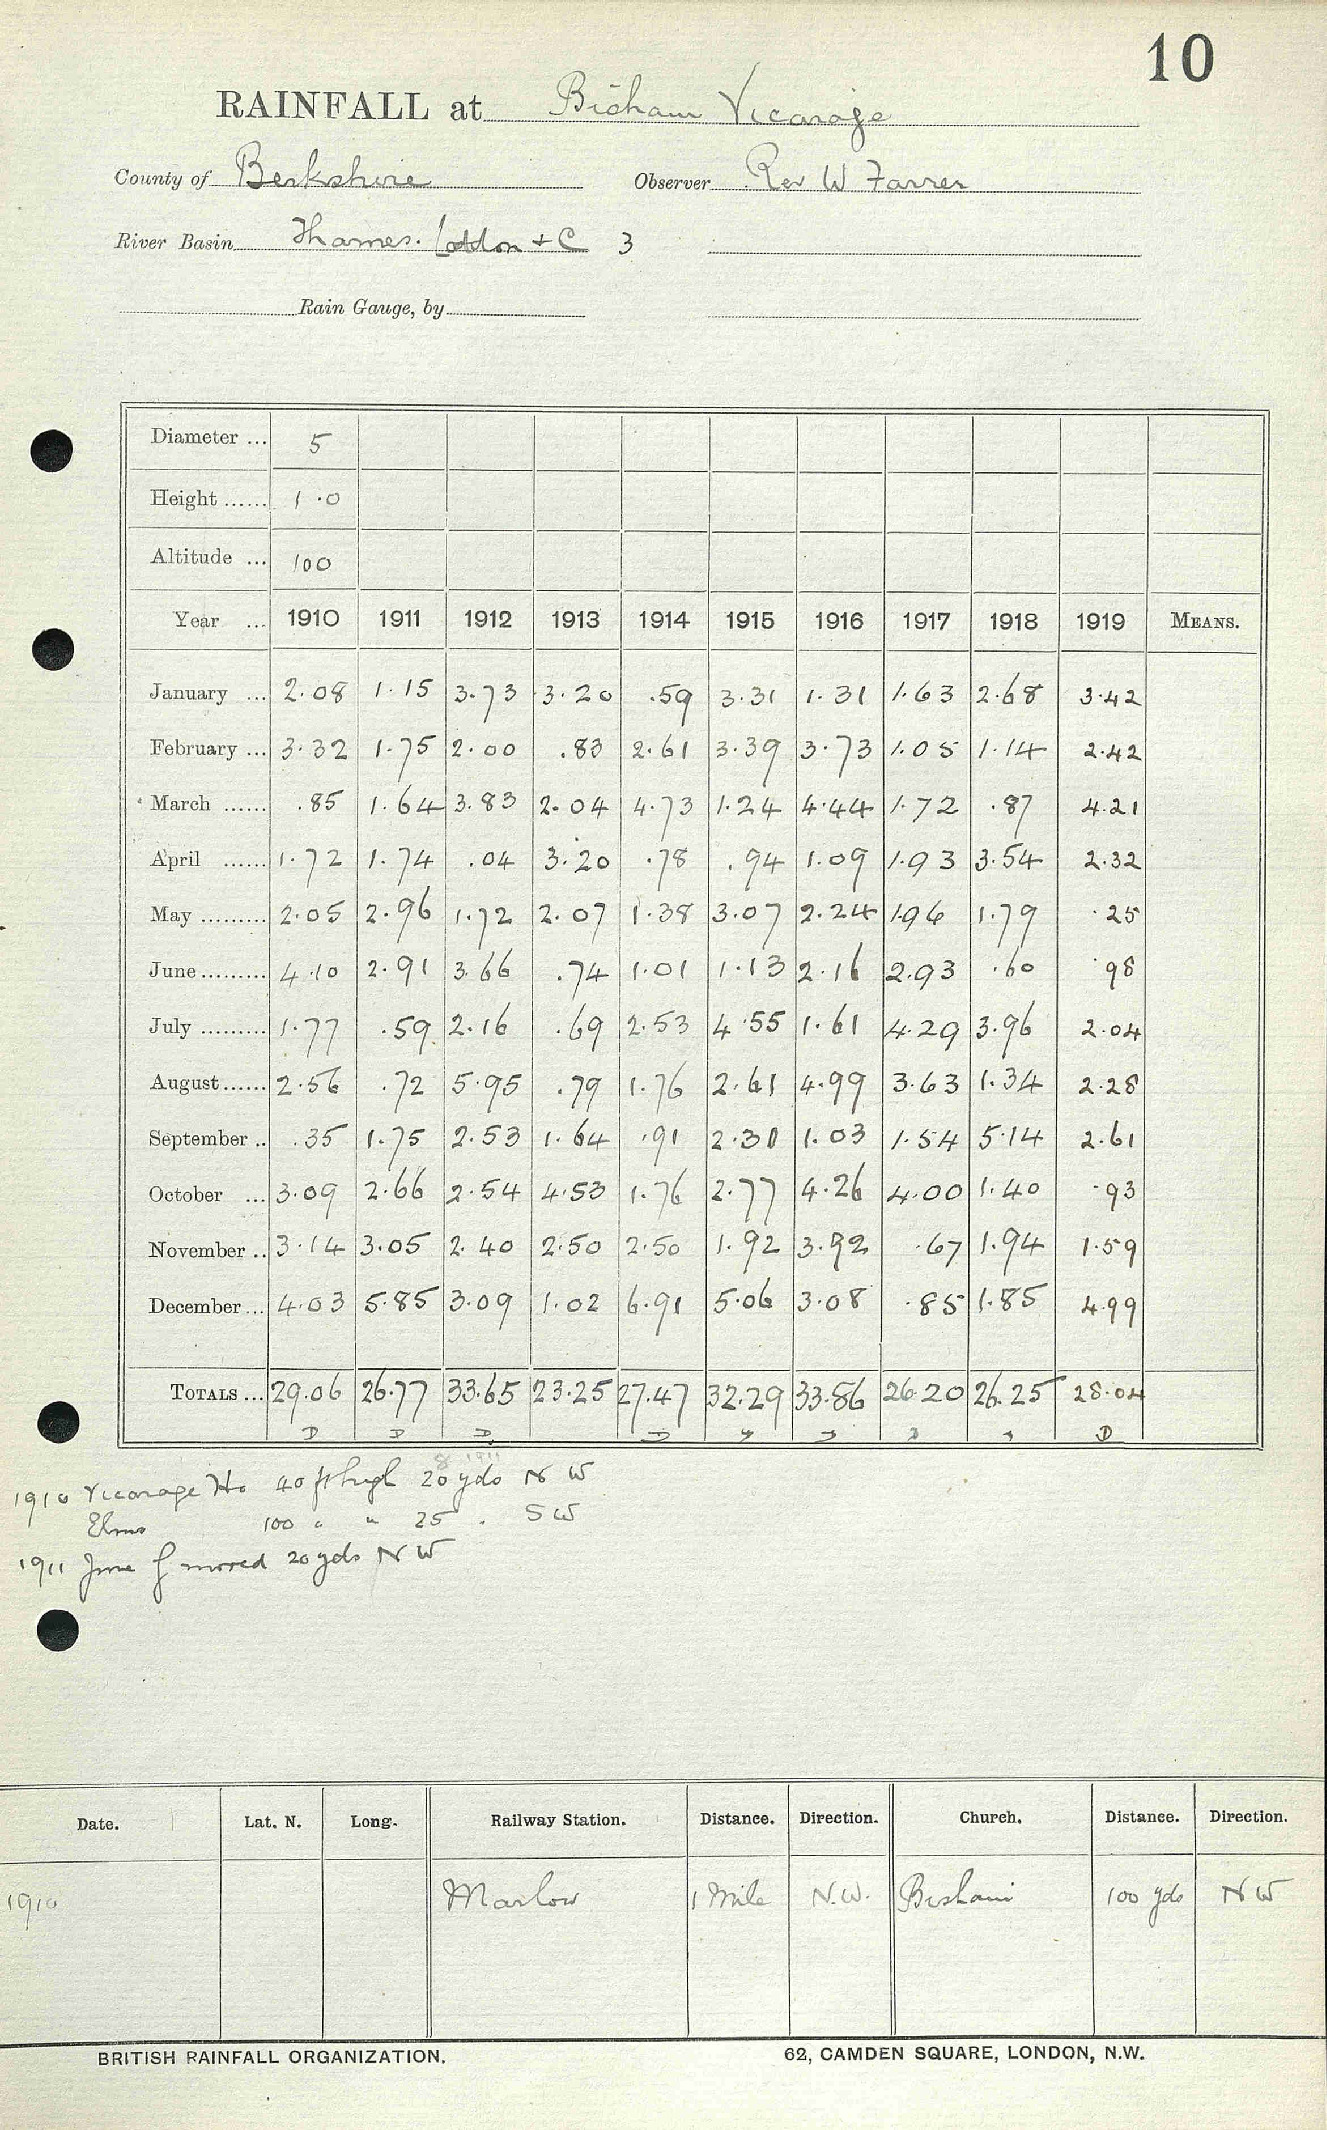 10
RAINFALL at Bisham Vicarage
County of Berkshire Observer Rev W Farrer
River Basin Thames. Loddon + C 3
Rain Gauge, by
Diameter ... 5
Height ...... 1.0
Altitude ... 100
Year ... 1910 1911 1912 1913 1914 1915 1916 1917 1918 1919 MEANS.
January ... 2.08 1.15 3.73 3.20 .59 3.31 1.31 1.63 2.68 3.42
February ... 3.32 1.75 2.00 .83 2.61 3.39 3.73 1.05 1.14 2.42
March ...... .85 1.64 3.83 2.04 4.73 1.24 4.44 1.72 .87 4.21
April ...... 1.72 1.74 .04 3.20 .78 .94 1.09 1.93 3.54 2.32
May ......... 2.05 2.96 1.72 2.07 1.38 3.07 2.24 1.96 1.79 .25
June ......... 4.10 2.91 3.66 .74 1.01 1.13 2.16 2.93 .60 .98
July ......... 1.77 .59 2.16 .69 2.53 4.55 1.61 4.29 3.96 2.04
August ...... 2.56 .72 5.95 .79 1.76 2.61 4.99 3.63 1.34 2.28
September .. .35 1.75 2.53 1.64 .91 2.30 1.03 1.54 5.14 2.61
October ... 3.09 2.66 2.54 4.53 1.76 2.77 4.26 4.00 1.40 .93
November .. 3.14 3.05 2.40 2.50 2.50 1.92 3.92 .67 1.94 1.59
December ... 4.03 5.85 3.09 1.02 6.91 5.06 3.08 .85 1.85 4.99
TOTALS ... 29.06 26.77 33.65 23.25 27.47 32.29 33.86 26.20 26.25 28.04
D D D D
1910 Vicarage Ho 40 ft high 20 yds N W
Elms 100 " " 25 . S W
1911 June g moved 20 yds N W
Date. Lat. N. Long. Railway Station. Distance. Direction. Church. Distance. Direction.
1910 Marlow 1 Mile N.W. Bisham 100 yds N W
BRITISH RAINFALL ORGANIZATION. 62, CAMDEN SQUARE, LONDON, N.W.